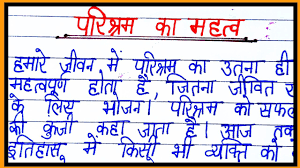 परिश्रम का महत्व
हमारे जीवन में परिश्रम का उतना ही
महत्वपूर्ण होता है, जितना जीवित र
के लिए भोजन। परिश्रम को सफल
की कुंजी कहा जाता है। आज तक
इतिहास में किसी भी व्यक्ति को